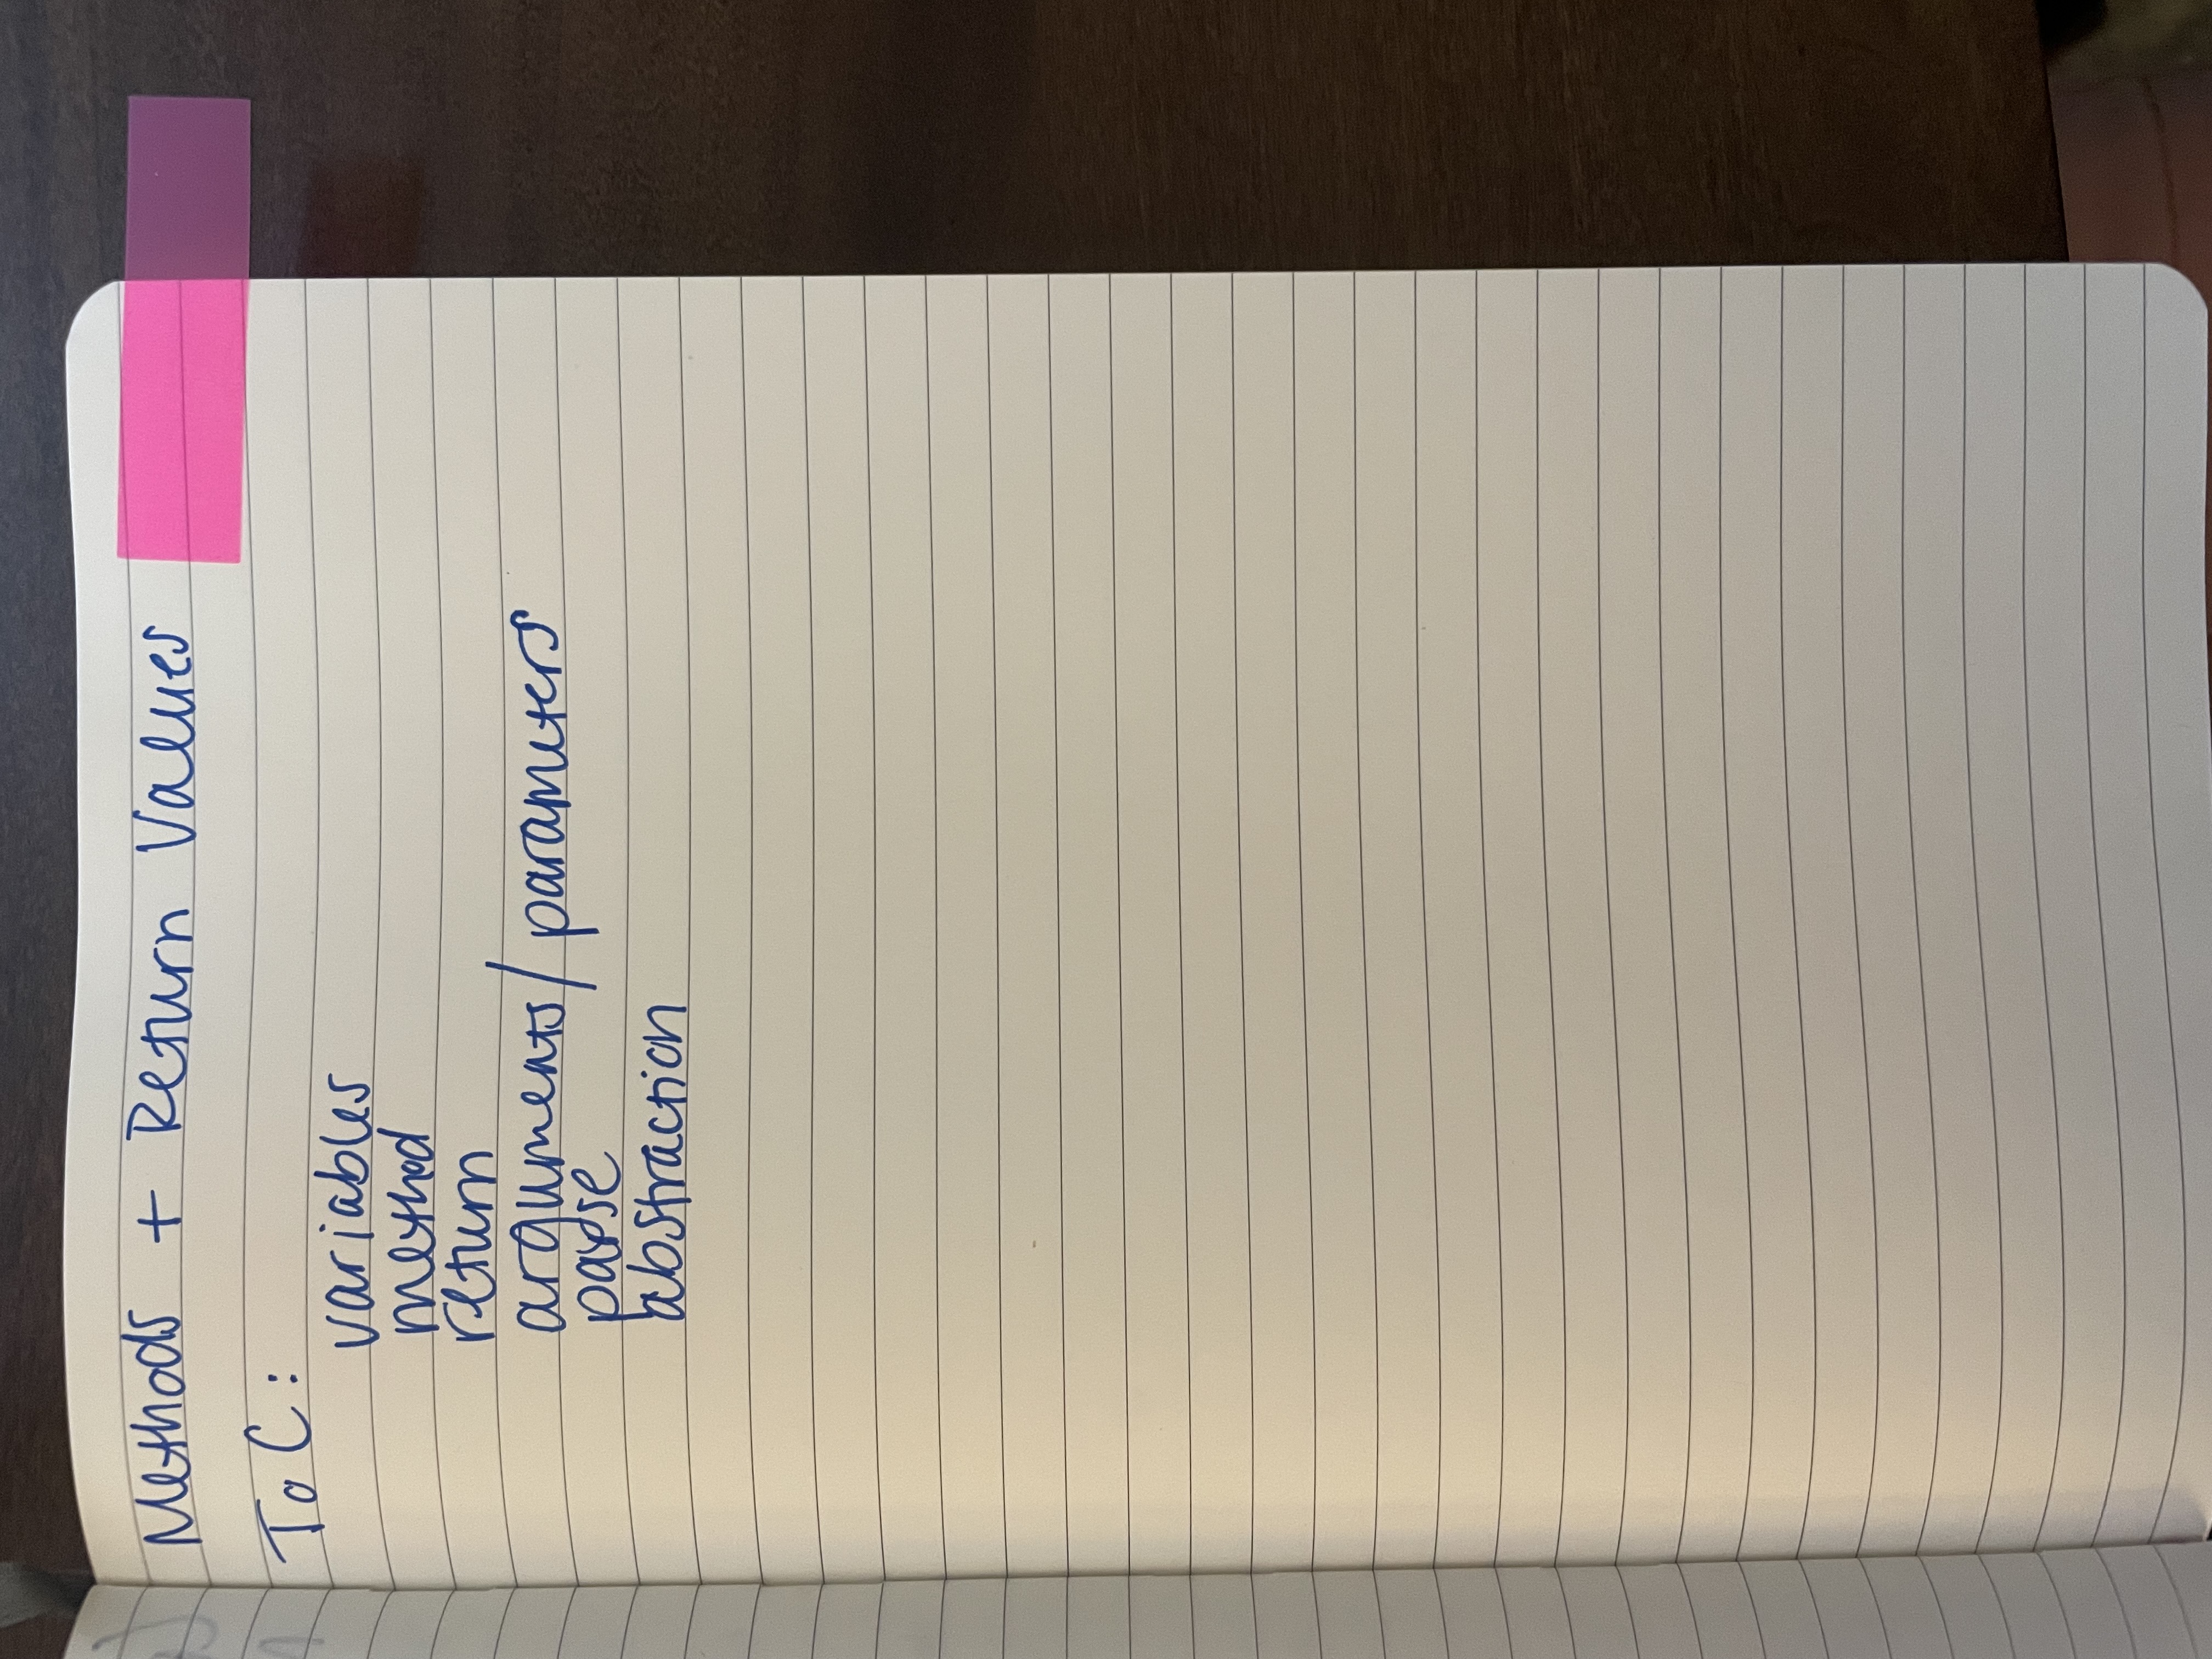 Methods + Return Values
ToC:
variables
method
return
arguments/parameters
parse
abstraction